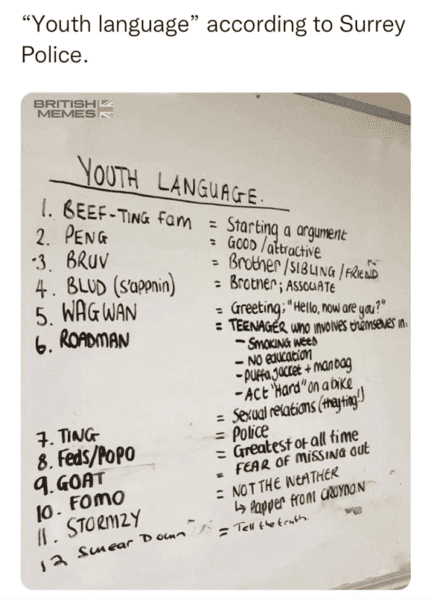 “Youth language” according to Surrey
Police.
BRITISH
MEMES
YOUTH LANGUAGE.
1. BEEF-TING fam = Starting a argument
2. PENG = GOOD/attractive
3. BRUV = Brother/SIBLING/FRIEND
4. BLUD (S'appnin) = Brother; ASSOCIATE
5. WAGWAN = Greeting; "Hello, how are you?"
6. ROADMAN = TEENAGER who involves themselves in:
- SMOKING WEED
- NO education
- Puffa jacket + manbag
- ACT "Hard" on a bike
7. TING = Sexual relations (thoyting!)
8. Feds/POPO = Police
9. GOAT = Greatest of all time
10. FOMO = FEAR OF MISSING OUT
11. STORMZY = NOT THE WEATHER
↳ Rapper from CROYDON
12 Swear Down = Tell the truth